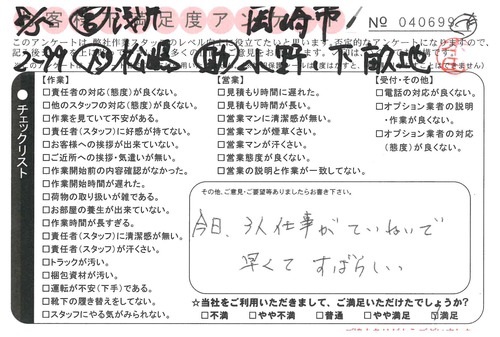 お客様満足度ア
№ 040699
このアンケートは、弊社作業スタッフのレベル向上に役立てたいと思います。否定的なアンケートになりますので、
チェックリスト
【作業】
□責任者の対応(態度)が良くない。
□他のスタッフの対応(態度)が良くない。
□作業を見ていて不安がある。
□責任者(スタッフ)に好感が持てない。
□お客様への挨拶が出来ていない。
□ご近所への挨拶・気遣いが無い。
□作業開始前の内容確認がなかった。
□作業開始時間が遅れた。
□荷物の取り扱いが雑である。
□お部屋の養生が出来ていない。
□作業時間が長すぎる。
□責任者(スタッフ)に清潔感が無い。
□責任者(スタッフ)が汗くさい。
□トラックが汚い。
□梱包資材が汚い。
□運転が不安(下手)である。
□靴下の履き替えをしてない。
□スタッフにやる気がみられない。
【営業】
□見積もり時間に遅れた。
□見積もり時間が長い。
□営業マンに清潔感が無い。
□営業マンが煙草くさい。
□営業マンが汗くさい。
□営業態度が良くない。
□営業の説明と作業が一致してない。
【受付・その他】
□電話の対応が良くない。
□オプション業者の説明
・作業が良くない。
□オプション業者の対応
(態度)が良くない。
その他、ご意見・ご要望等ありましたらお書き下さい。
今日、3人仕事がていねいで
早くて すばらしい
☆当社をご利用いただきまして、ご満足いただけたでしょうか?
□不満 □やや不満 □普通 □やや満足 ☑満足